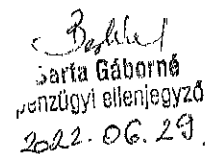 Barta Gáborné
pénzügyi ellenjegyző
2022. 06. 29.